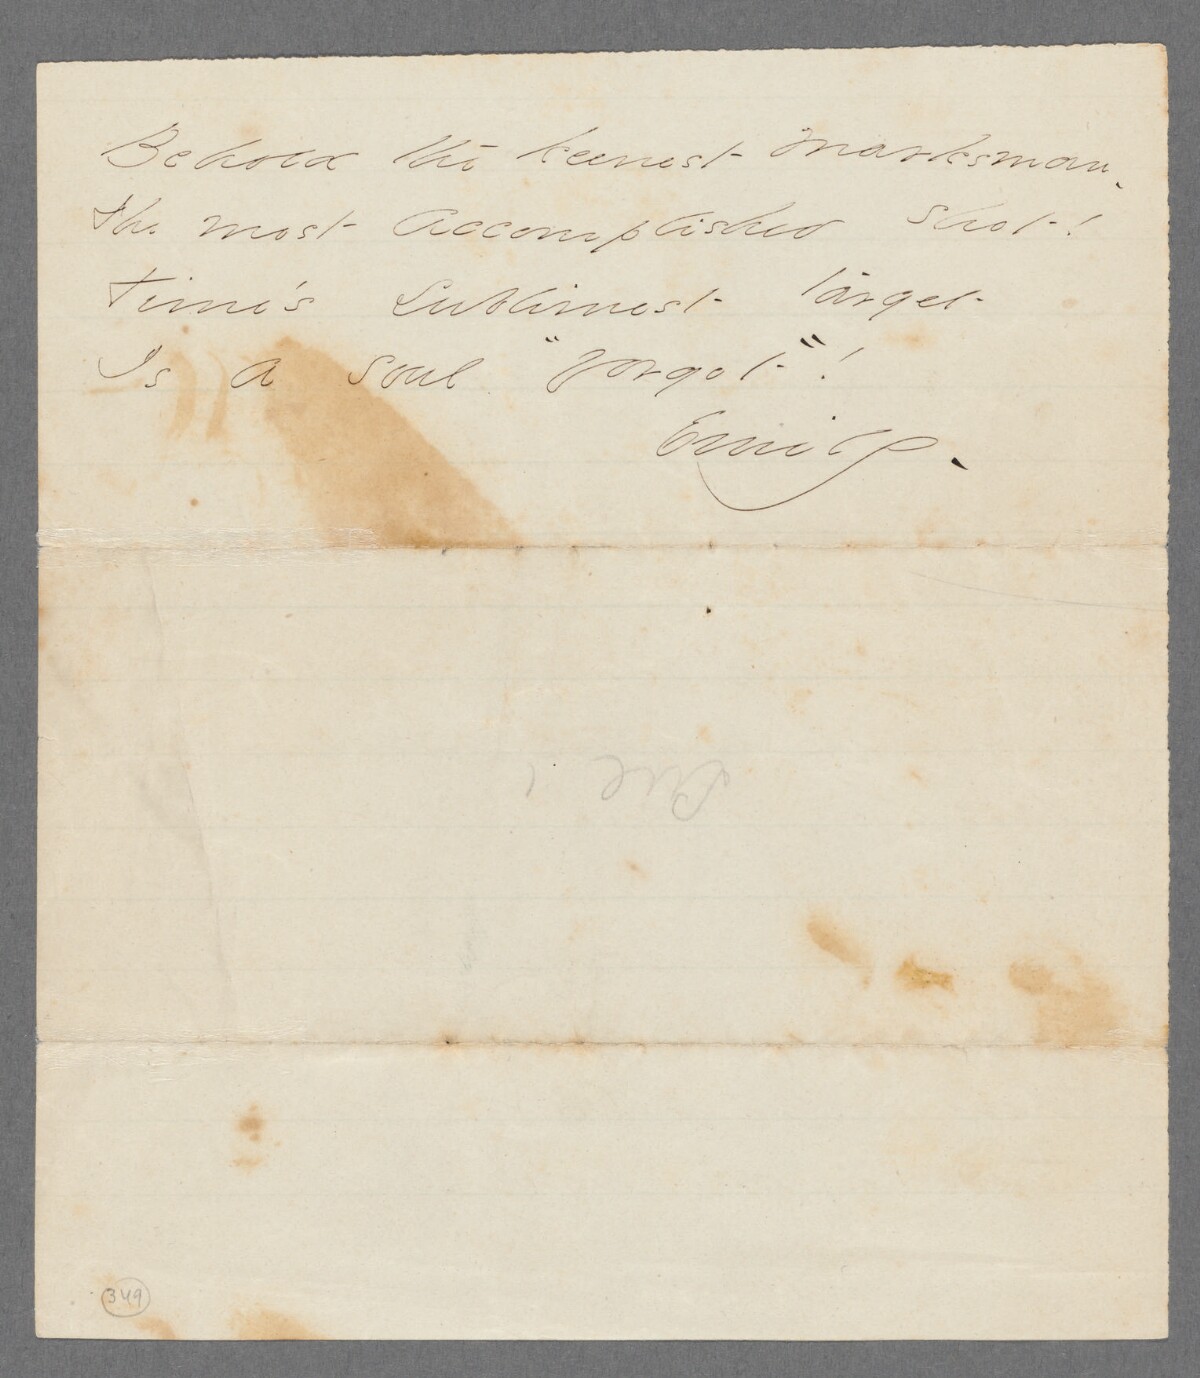 Behold the keenest marksman,
The most accomplished shot!
Time's sublimest target
Is a soul "forgot"!
Emily.
Sue
349